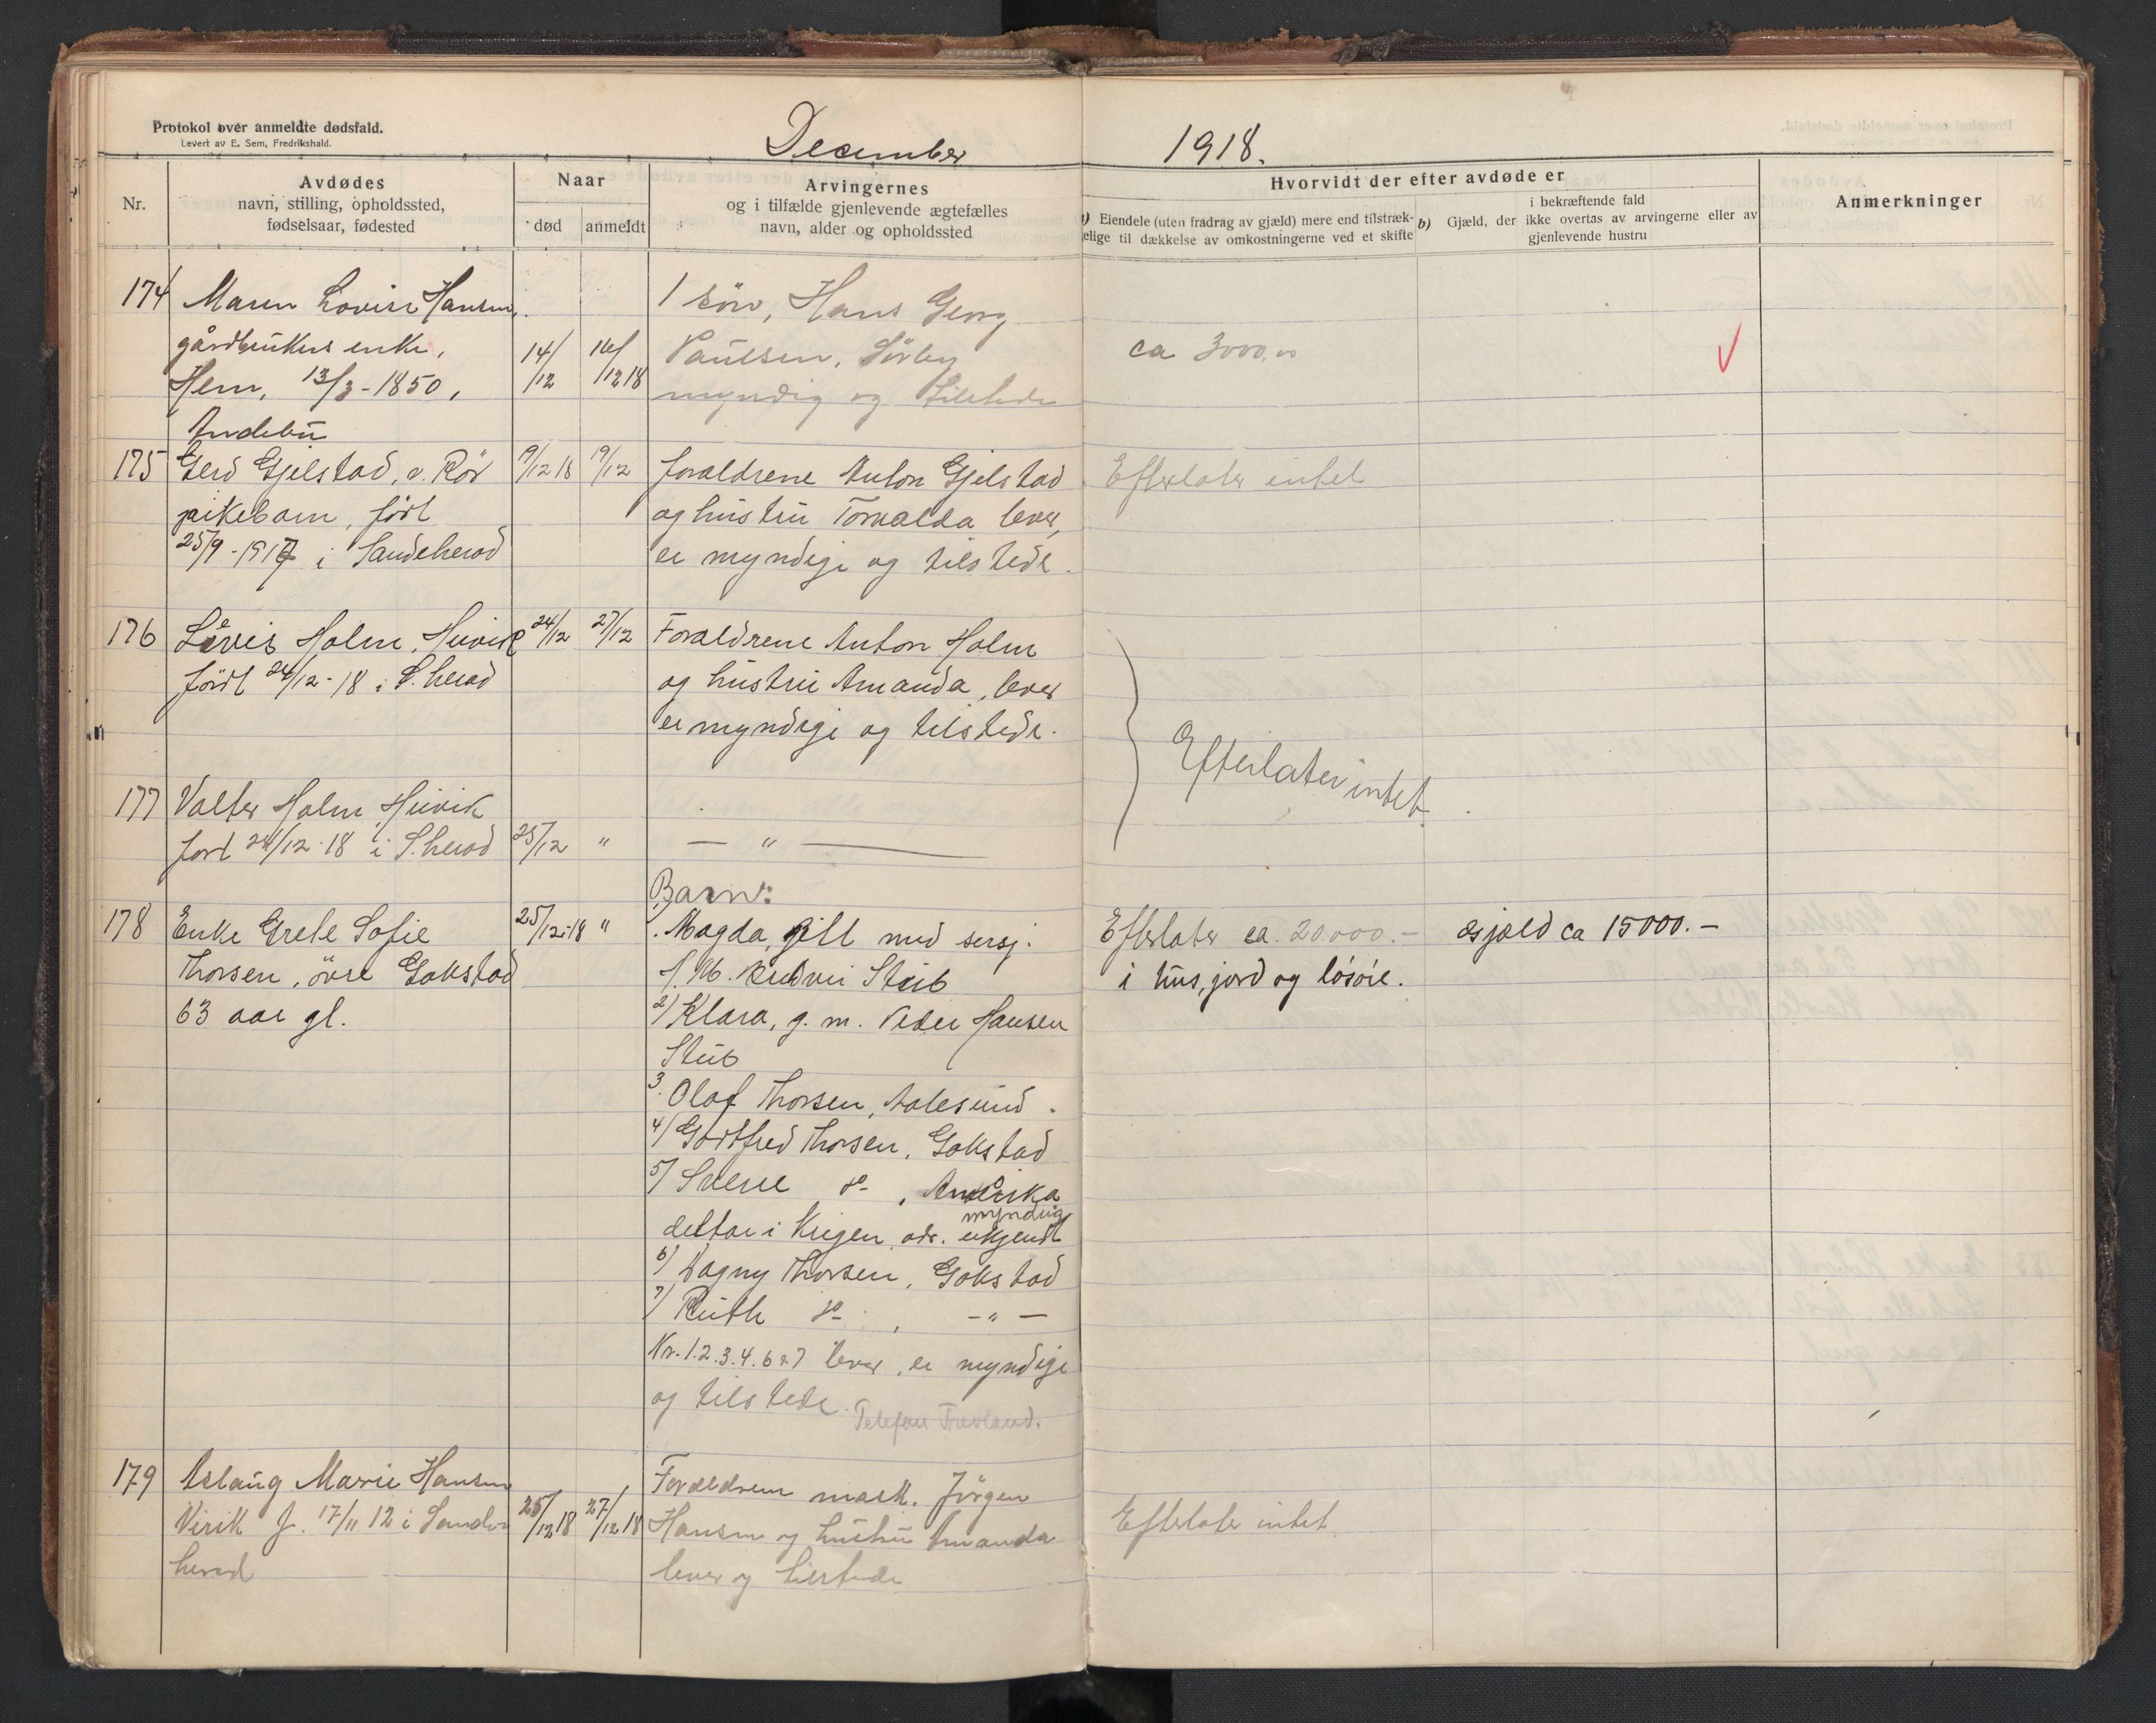 Protokol over anmeldte dødsfald.
Levert av E. Sem, Fredrikshald.
December 1918.
Nr.
Avdødes
navn, stilling, opholdssted,
fødselsaar, fødested
Naar
død
anmeldt
Arvingernes
og i tilfælde gjenlevende ægtefælles
navn, alder og opholdssted
Hvorvidt der efter avdøde er
a) Eiendele (uten fradrag av gjæld) mere end tilstræk-
kelige til dækkelse av omkostningerne ved et skifte
b) Gjæld, der i bekræftende fald
ikke overtas av arvingerne eller av
gjenlevende hustru
Anmerkninger
174 Maren Lovise Hansen,
gårdbrukers enke,
Hem, 13/3-1850,
Andebu
14/12
16/12 18
1 sön, Hans Georg
Paulsen, Sörby
myndig og tilstede
ca 3000,00
175 Gerd Gjelstad, v. Rör
pikebarn, födt
25/9-1917 i Sandeherad
19/12 18
19/12
foraldrene Anton Gjelstad
og hustru Torvalda lever,
er myndige og tilstede.
Efterlater intet
176 Lovis Holm, Huvik
födt 24/12-18 i S.herad
24/12
27/12
Foraldrene Anton Holm
og hustru Amanda, lever
er myndige og tilstede.
Efterlater intet.
177 Valter Holm, Huvik
fört 24/12-18 i S.herad
25/12
"
— " —
178 Enke Grete Sofie
Thorsen, övre Gokstad
63 aar gl.
25/12-18
"
Barn:
1. Magda, gift med sersj.
Ludvei Stub
2) Klara, g. m. Peder Hansen
Stub
3. Olaf Thorsen, Aalesund.
4) Gottfred Thorsen, Gokstad
5) Sverre do-, Amerika
deltar i Krigen, adr. ukjendt
myndig
6) Dagny Thorsen, Gokstad
7) Ruth do-, -"-
Nr. 1.2.3.4.6 & 7 lever, er myndige
og tilstede.
Telefon
Efterlater ca. 20000.-
i hus, jord og lösöie.
Gjæld ca 15000.-
179 Aslaug Marie Hansen
Virik f. 17/11 12 i Sande-
herad
25/12 18
27/12 18
Forældrene Jörgen
Hansen og hustru Amanda
lever og tilstede
Efterlater intet